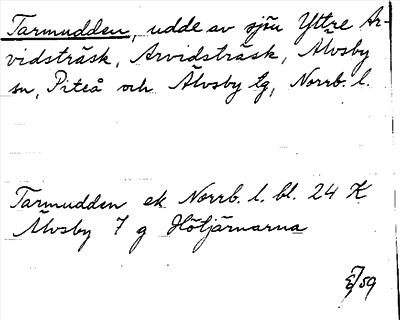 Tarmudden, udde av sjön Yttre Ar-
vidsträsk, Arvidsträsk, Älvsby
sn, Piteå och Älvsby tg, Norrb. l.
Tarmudden ek Norrb. l. bl. 24 K
Älvsby 7 g Hötjärnarna
/59